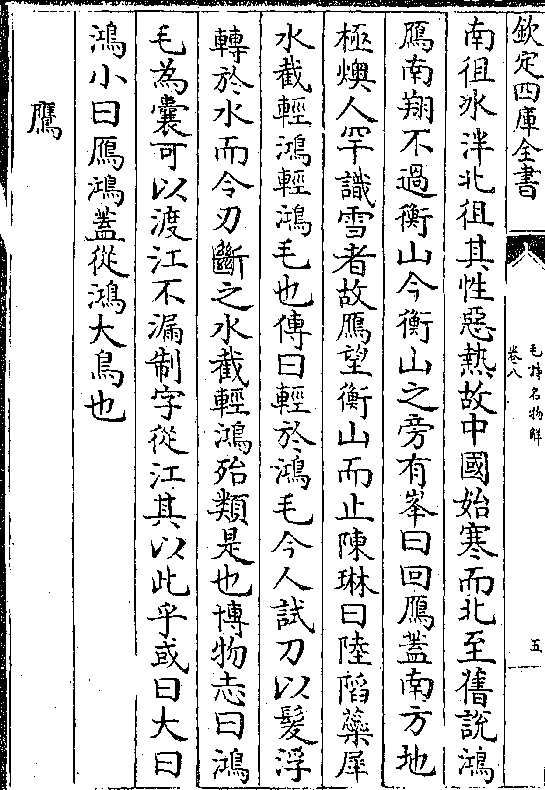 欽定四庫全書
毛詩名物解
卷八
五
南徂冰泮北徂其性惡熱故中國始寒而北至舊說鴻
鴈南翔不過衡山今衡山之旁有峯曰回鴈蓋南方地
極燠人罕識雪者故鴈望衡山而止陳琳曰陸䧟蘂犀
水截輕鴻輕鴻毛也傳曰輕於鴻毛今人試刀以髮浮
轉於水而令刃斷之水截輕鴻殆類是也博物志曰鴻
毛為囊可以渡江不漏制字從江其以此乎或曰大曰
鴻小曰鴈鴻蓋從鴻大鳥也
鷹